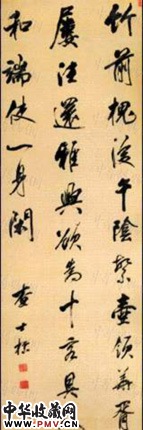 竹前槐後午陰繁壺領華胥
屢往還雅興欲為十客具
和端使一身閑 查士標
中华收藏网
WWW.PMV.CN